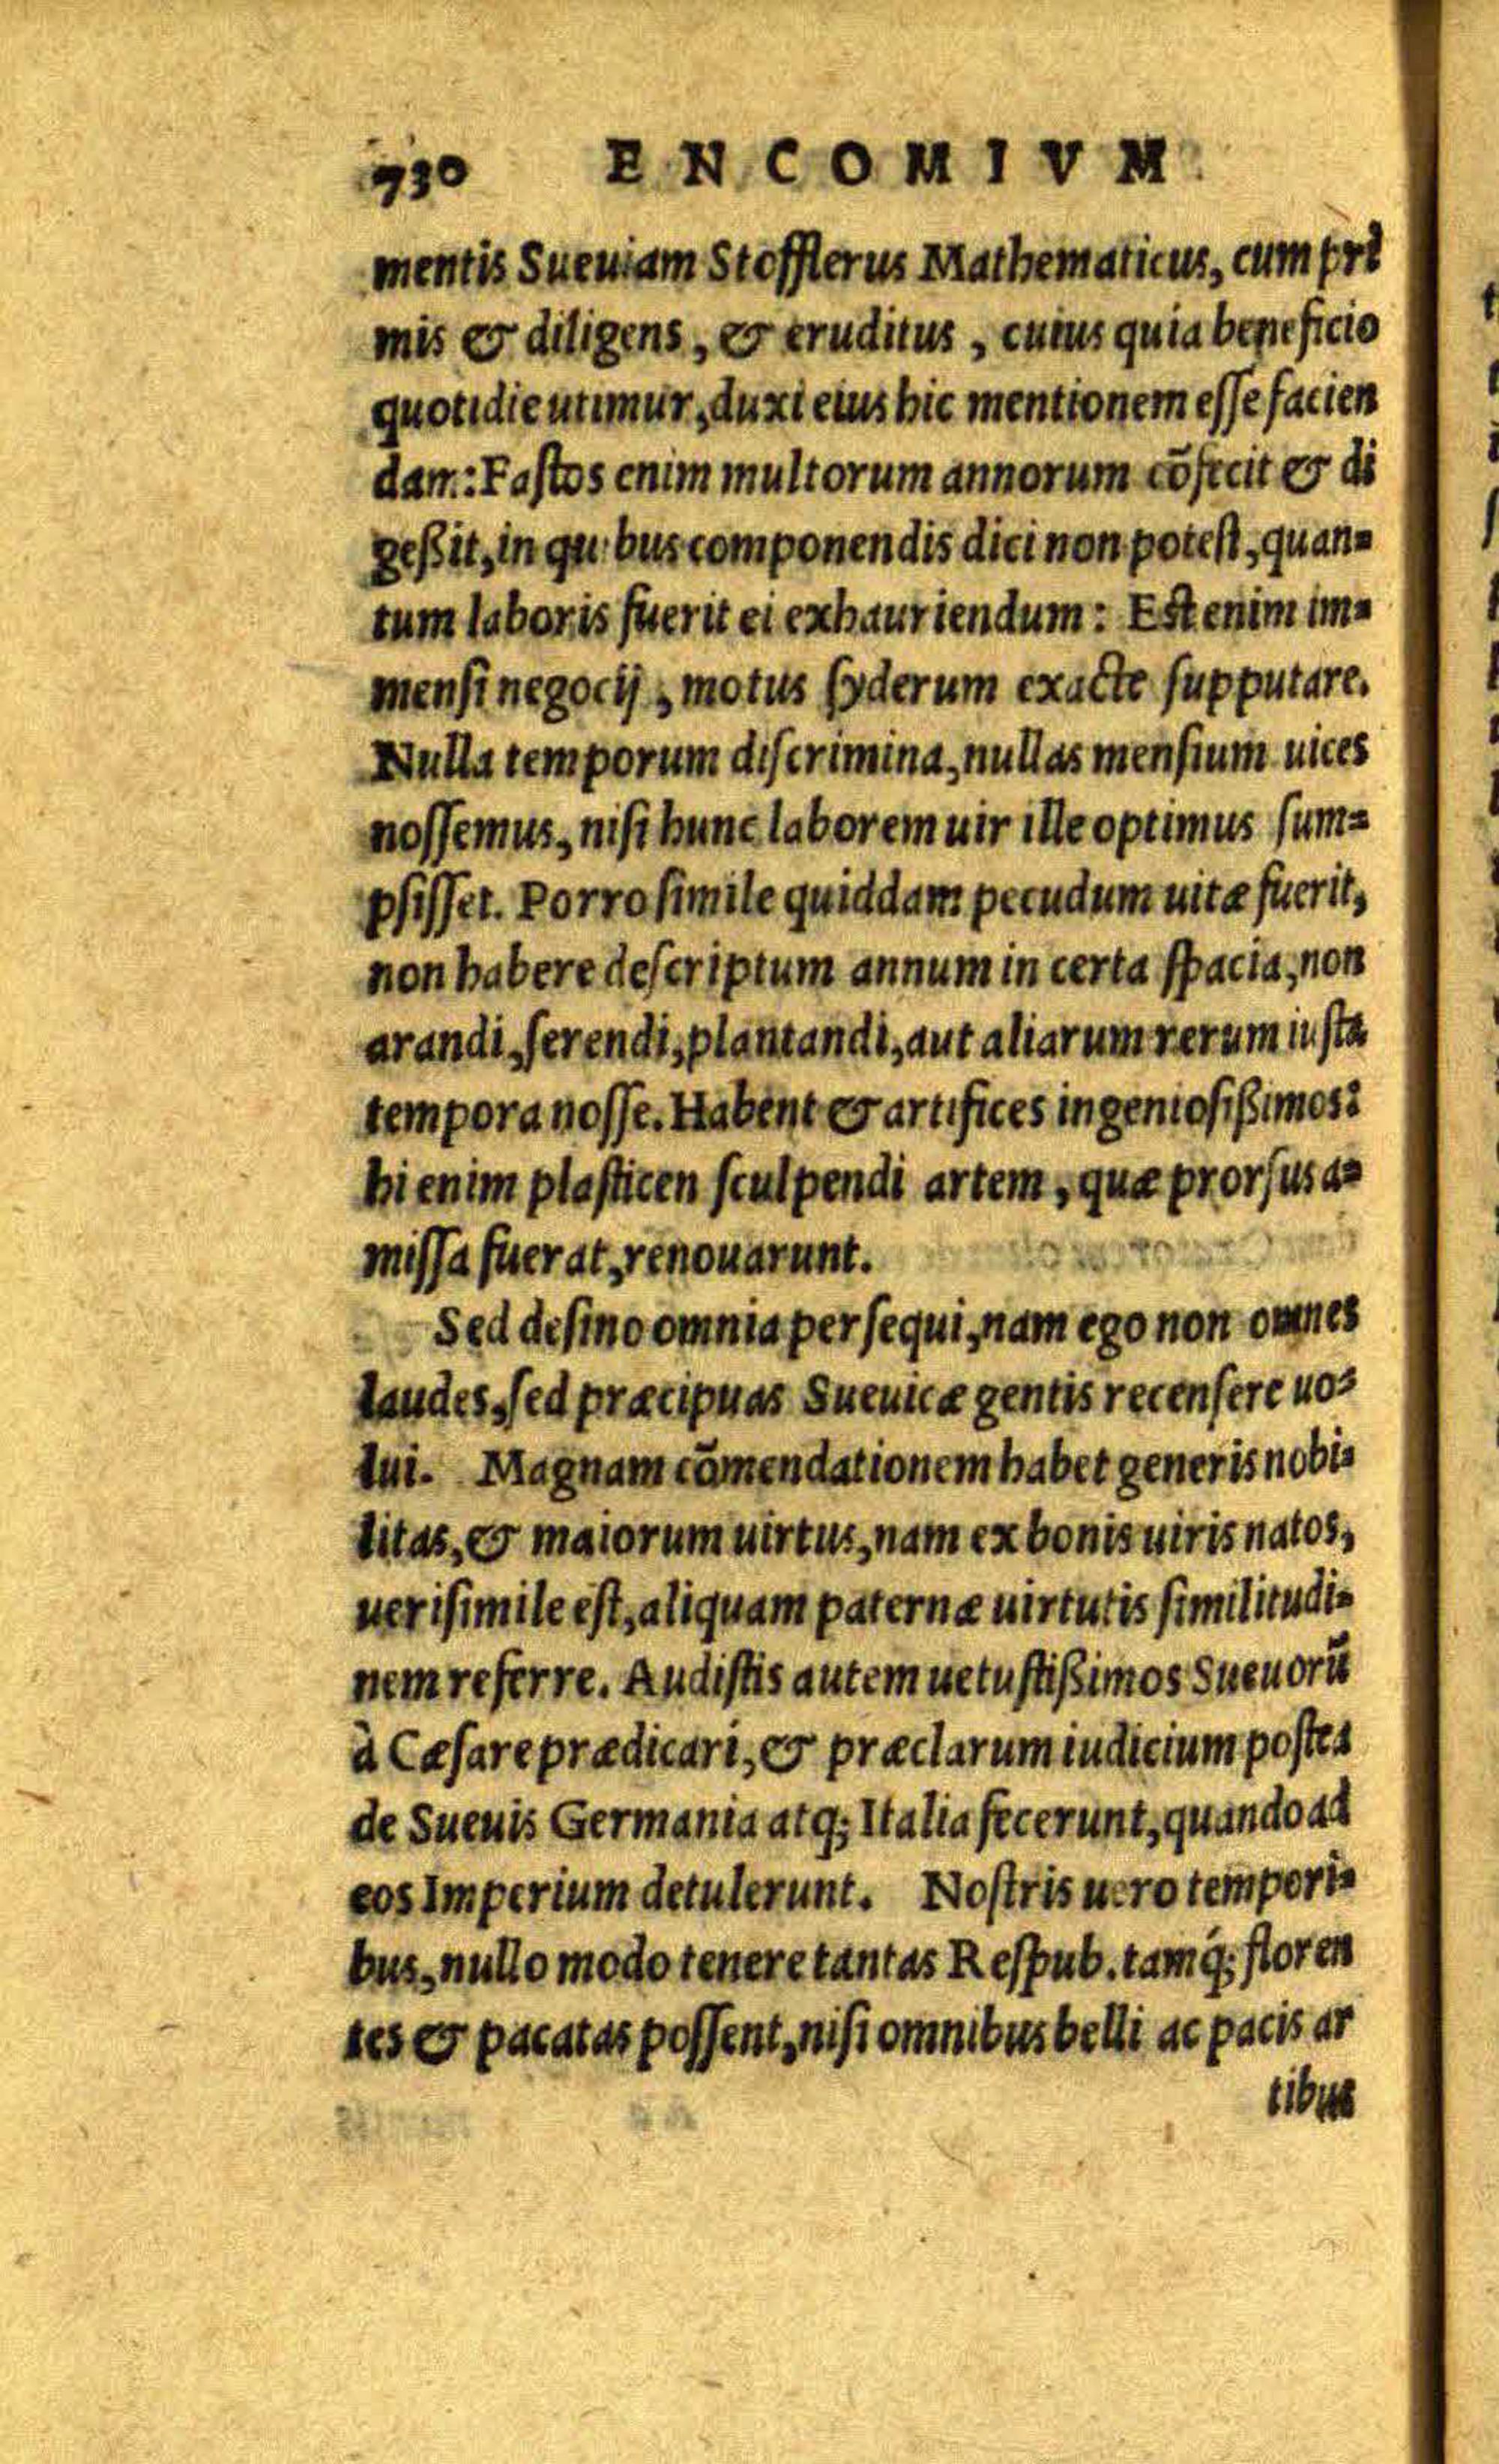 730 ENCOMIVM
mentis Sueuiam Stofflerus Mathematicus, cum pri
mis & diligens, & eruditus, cuius quia beneficio
quotidie utimur, duxi eius hic mentionem esse facien
dam: Fastos enim multorum annorum cõfecit & di
geßit, in quibus componendis dici non potest, quan=
tum laboris fuerit ei exhauriendum: Est enim im=
mensi negocij, motus syderum exacte supputare.
Nulla temporum discrimina, nullas mensium uices
nossemus, nisi hunc laborem uir ille optimus sum=
psisset. Porro simile quiddam pecudum uitæ fuerit,
non habere descriptum annum in certa spacia, non
arandi, serendi, plantandi, aut aliarum rerum iusta
tempora nosse. Habent & artifices ingeniosißimos:
hi enim plasticen sculpendi artem, quæ prorsus a=
missa fuerat, renouarunt.
Sed desino omnia persequi, nam ego non omnes
laudes, sed præcipuas Sueuicæ gentis recensere uo=
lui. Magnam cõmendationem habet generis nobi=
litas, & maiorum uirtus, nam ex bonis uiris natos,
uerisimile est, aliquam paternæ uirtutis similitudi=
nem referre. Audistis autem uetustißimos Sueuorũ
à Cæsare prædicari, & præclarum iudicium postea
de Sueuis Germania atq; Italia fecerunt, quando ad
eos Imperium detulerunt. Nostris uero tempori=
bus, nullo modo tenere tantas Respub. tamq́; floren
tes & pacatas possent, nisi omnibus belli ac pacis ar
tibus